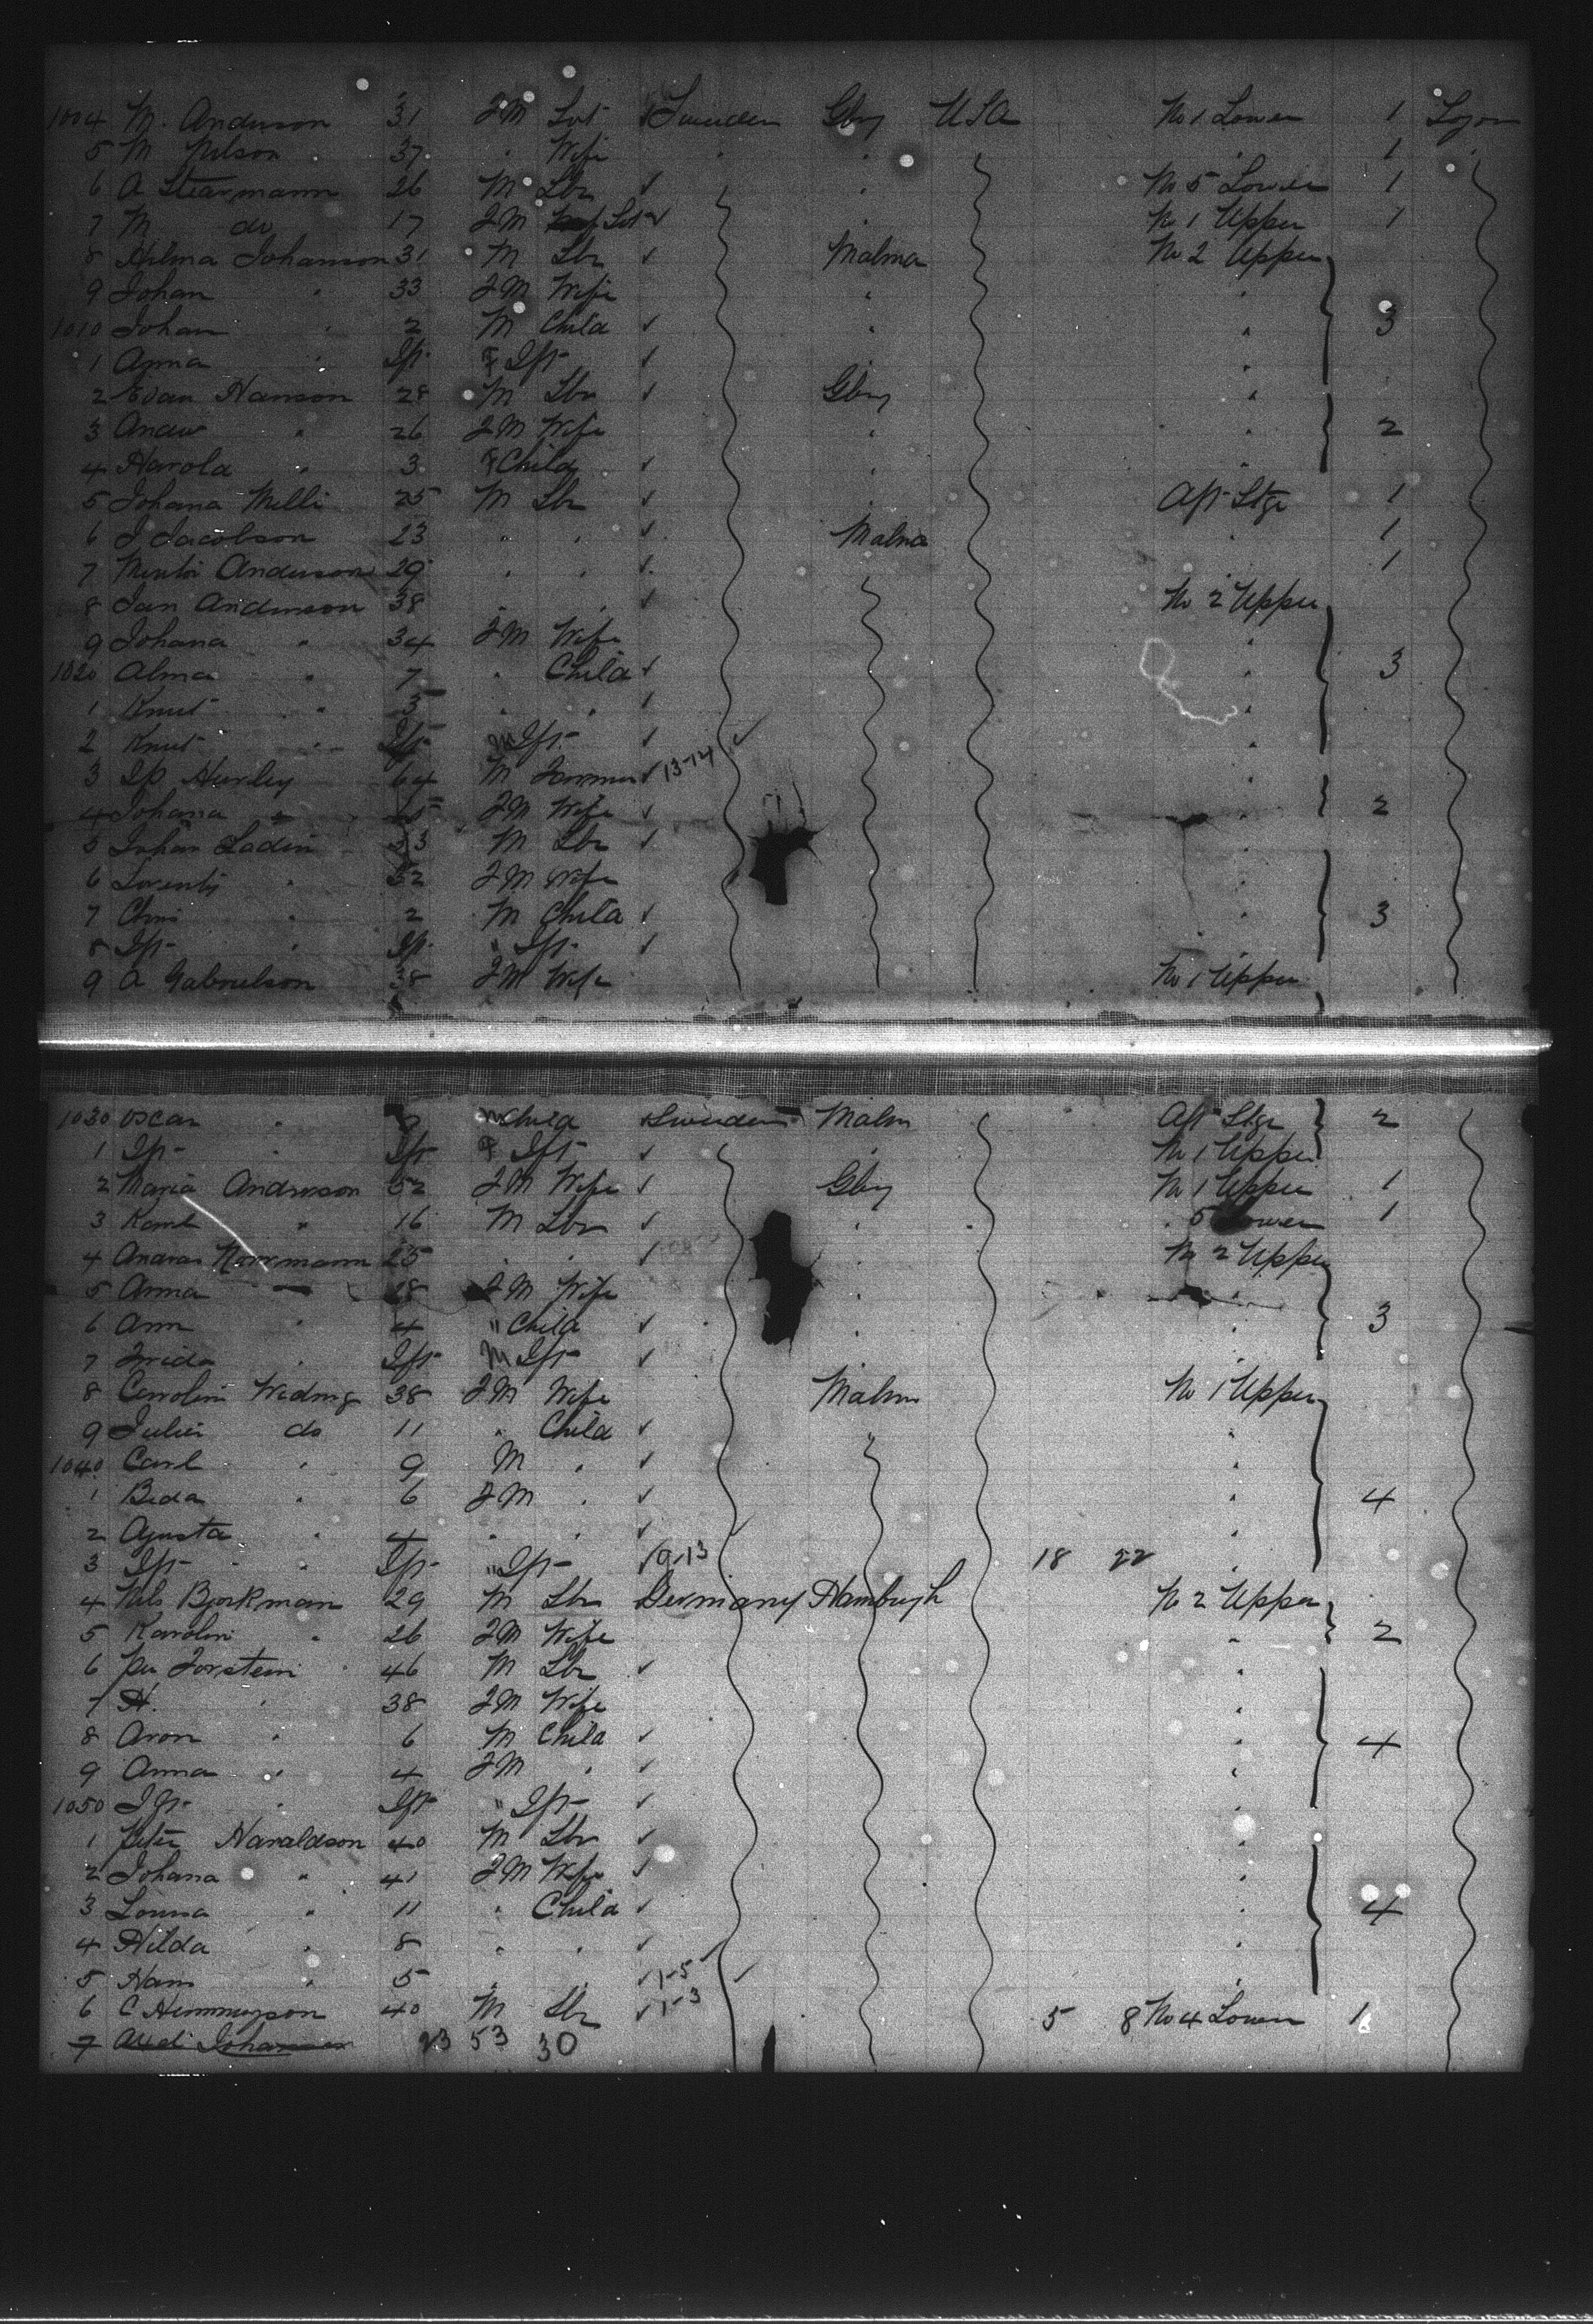 1004 M. Anderson 31 FM Svt Sweden Gbg USA No 1 Lower 1 Sojon
5 M Nilson 37 " Wife " 1
6 A Stearmann 26 M Lbr " No 5 Lower 1
7 M do 17 FM Svt " No 1 Upper 1
8 Hilma Johanson 31 M Lbr Malma No 2 Upper
9 Johan " 33 FM Wife " "
1010 Johan " 2 M Child " " 3
1 Agma " Ift F Ift "
2 Evan Hanson 28 M Lbr Gbg "
3 Andw " 26 FM Wife " " 2
4 Harold " 3 F Child " "
5 Johana Milli 25 M Lbr " Aft Stge 1
6 J Jacobson 23 " " Malma " 1
7 Anderson 29 " " " 1
8 Jan Anderson 38 " " No 2 Upper
9 Johana " 34 FM Wife "
1020 Alma " 7 " Child " 3
1 Knut " 5 " " "
2 Knut " Ift M Ift "
3 Hurley 64 M Farmer 13-14 "
4 Johana " FM Wife " 2
5 Johan Ladin 33 M Lbr "
6 " 32 FM Wife "
7 " 2 M Child " 3
8 Ift " Ift " Ift "
9 A Gabrielson 38 FM Wife No 1 Upper
1030 Oscar " 9 M Child Sweden Malm Aft Stge 2
1 Ift " Ift F Ift No 1 Upper
2 Maria Anderson 52 FM Wife Gbg No 1 Upper 1
3 " 16 M Lbr " " 5 Lower 1
4 Norrmann 25 " " " No 2 Upper
5 Anna 28 FM Wife " "
6 Ann " 4 " Child " " 3
7 Frida " Ift M Ift "
8 Carolin 38 FM Wife Malm No 1 Upper
9 Julia do 11 " Child "
1040 Carl " 9 M " "
1 Beda " 6 FM " " 4
2 Agusta " 4 " " "
3 Ift " Ift " Ift 9-13 18 22 "
4 Nils Bjorkman 29 M Lbr Germany Hamburgh No 2 Upper
5 Karolin " 26 FM Wife " 2
6 Per Torstein 46 M Lbr "
7 H. " 38 FM Wife "
8 Aron " 6 M Child " 4
9 Anna " 4 FM " "
1050 Ift " Ift " Ift "
1 Peter Haraldson 40 M Lbr "
2 Johana " 41 FM Wife "
3 " 11 " Child " 4
4 Hilda " 8 " " "
5 Hans " 5 " " 1-5 "
6 C 40 M Lbr 1-3 5 8 No 4 Lower 1
7 Johanson 23 53 30